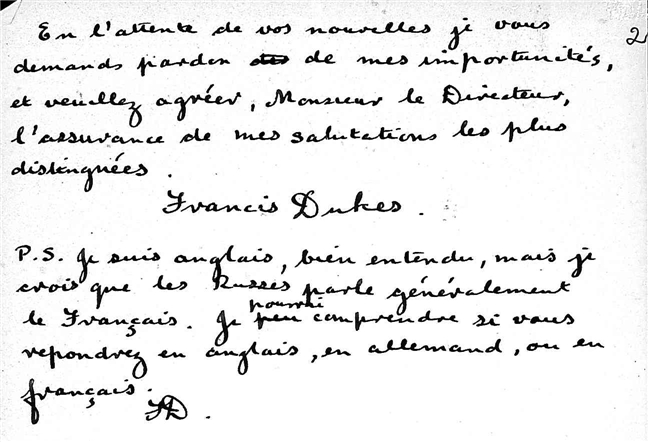 En l'attente de vos nouvelles je vous
2
demands pardon de mes importunités,
et veuillez agréer, Monsieur le Directeur,
l'assurance de mes salutations les plus
distinguées.
Francis Dukes.
P.S. Je suis anglais, bien entendu, mais je
crois que les Russes parle généralement
pourrai
le Français. Je peu comprendre si vous
repondrez en anglais, en allemand, ou en
français.
FD.